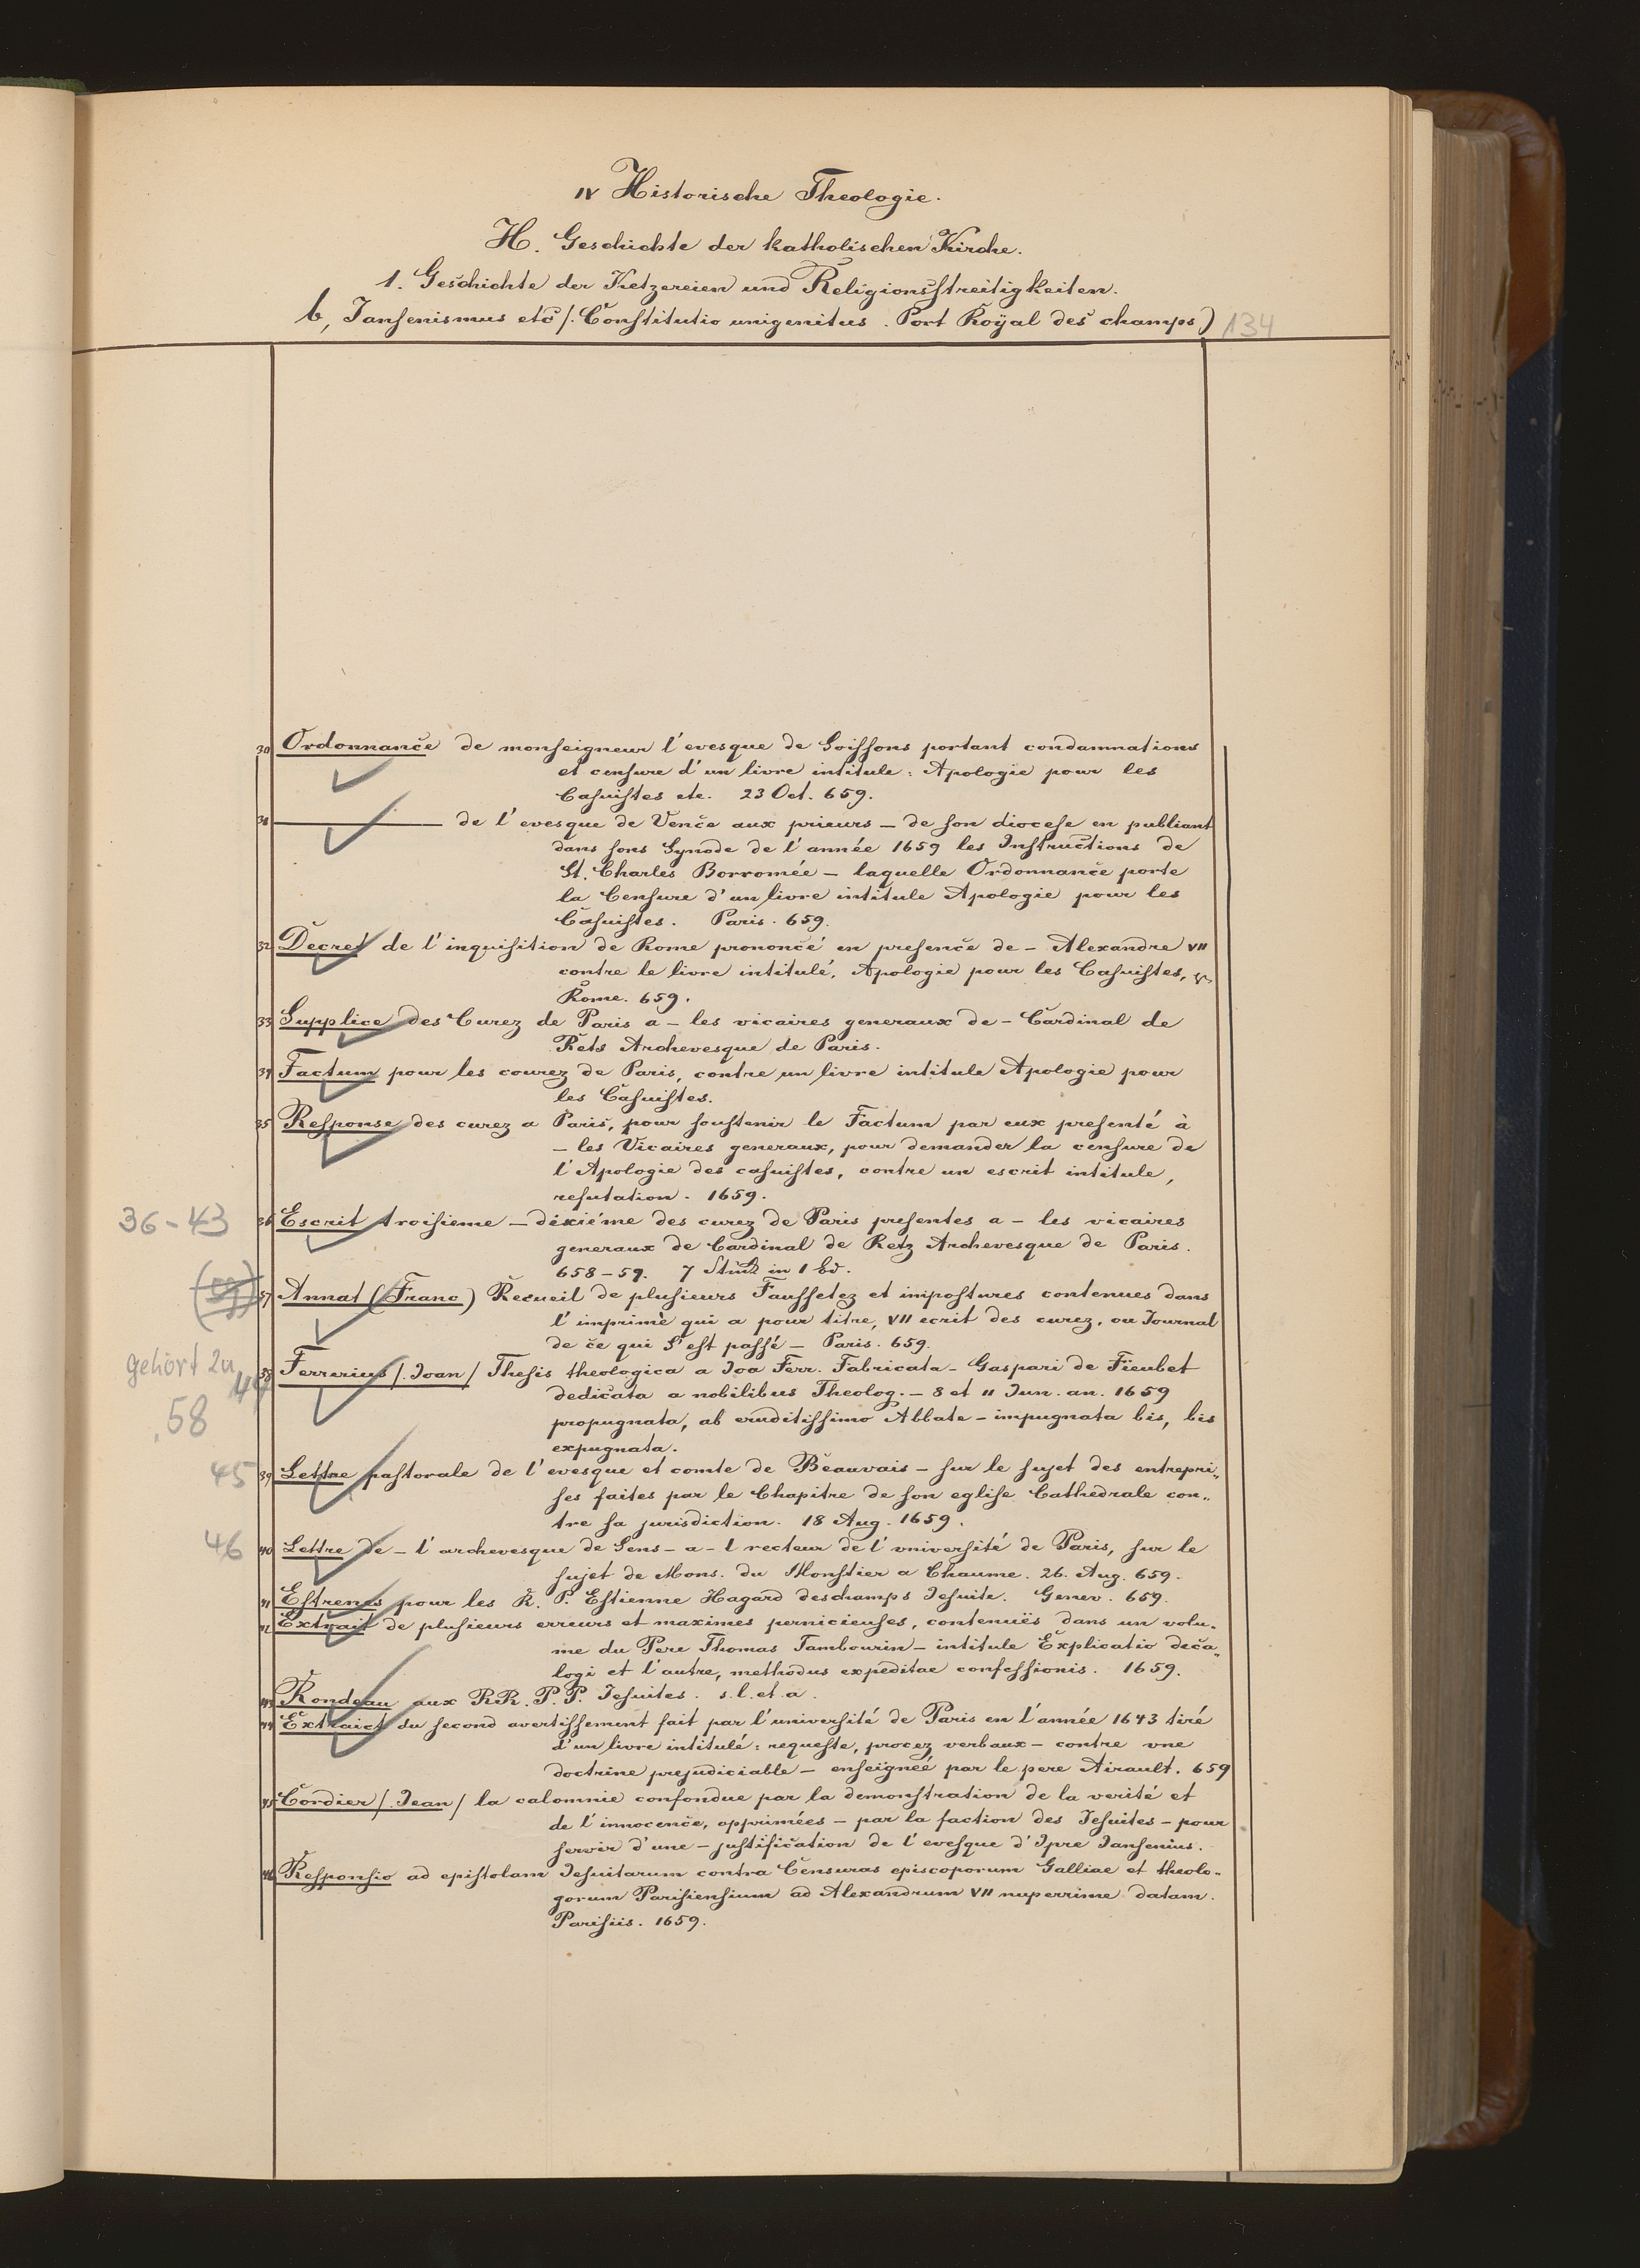 IV Historische Theologie.
H. Geschichte der katholischen Kirche.
1. Geschichte der Ketzereien und Religionsstreitigkeiten.
b, Jansenismus etc /. Constitutio unigenitus. Port Royal des champs) 134
30 Ordonnance de monseigneur l'evesque de Soissons portant condamnations
et censure d'un livre intitule: Apologie pour les
Casuistes etc. 23 Oct. 659.
31 ——— de l'evesque de Vence aux prieurs — de son diocese en publiant
dans sons Synode de l'année 1659 les Instructions de
St. Charles Borromée — laquelle Ordonnance porte
la Censure d'un livre intitule Apologie pour les
Casuistes. Paris. 659.
32 Decret de l'inquisition de Rome prononcé en presence de — Alexandre VII
contre le livre intitulé, Apologie pour les Casuistes,
Rome. 659.
33 Supplice des Curez de Paris a — les vicaires generaux de — Cardinal de
Rets Archevesque de Paris.
34 Factum pour les courez de Paris, contre un livre intitule Apologie pour
les Casuistes.
35 Response des curez a Paris, pour soustenir le Factum par eux presenté à
— les Vicaires generaux, pour demander la censure de
l'Apologie des casuistes, contre un escrit intitule,
refutation. 1659.
36-43 36 Escrit troisieme — dixiéme des curez de Paris presentes a — les vicaires
generaux de Cardinal de Retz Archevesque de Paris.
658-59. 7 Stück in 1 bd.
37 Annat (Franc) Recueil de plusieurs Faussetez et impostures contenues dans
l'imprimè qui a pour titre, VII ecrit des curez, ou Journal
de ce qui s'est passé — Paris. 659.
gehört zu 44 38 Ferrerius /. Joan / Thesis theologica a Joa Ferr. Fabricata — Gaspari de Fieubet
58 dedicata a nobilibus Theolog. — 8 et 11 Jun. an. 1659
propugnata, ab eruditissimo Abbate — impugnata bis, bis
expugnata.
45 39 Lettre pastorale de l'evesque et comte de Beauvais — sur le sujet des entrepri„
ses faites par le Chapitre de son eglise Cathedrale con„
tre sa jurisdiction. 18 Aug. 1659.
46 40 Lettre de — l'archevesque de Sens — a — l recteur de l'université de Paris, sur le
sujet de Mons. du Monstier a Chaume. 26. Aug. 659.
41 Estrenes pour les R. P. Estienne Hagard deschamps Jesuite. Genev. 659.
42 Extrait de plusieurs erreurs et maximes pernicieuses, contenuës dans un volu„
me du Pere Thomas Tambourin — intitule Explicatio deca„
logi et l'autre, methodus expeditae confessionis. 1659.
43 Rondeau aux RR. P. P. Jesuites. s. l. et. a.
44 Extraict du second avertissement fait par l'université de Paris en l'année 1643 tiré
d'un livre intitulé: requeste, procez verbaux — contre vne
doctrine prejudiciable — enseignéé par le pere Airault. 659
45 Cordier /. Jean / la calomnie confondue par la demonstration de la verité et
de l'innocence, opprimées — par la faction des Jesuites — pour
servir d'une — justification de l'evesque d'Ipre Jansenius.
46 Responsio ad epistolam Jesuitarum contra Censuras episcoporum Galliae et theolo„
gorum Parisiensium ad Alexandrum VII nuperrime datam.
Parisiis. 1659.